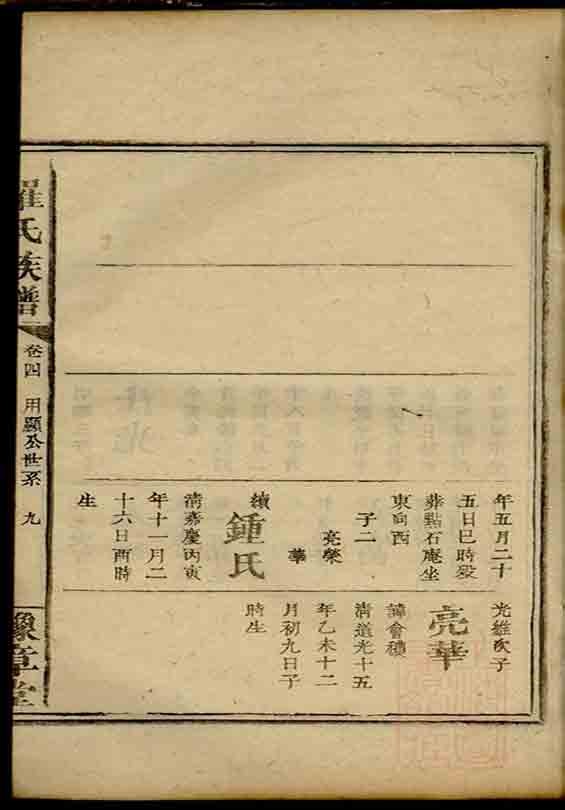 年五月二十
五日巳時歿
葬點石庵坐
東向西
子二
亮榮
華
續鍾氏
清嘉慶丙寅
年十一月二
十六日酉時
生
光雄次子
亮華
諱會穗
清道光十五
年乙未十二
月初九日子
時生
羅氏族譜
卷四 用顯公世系 九
豫章堂